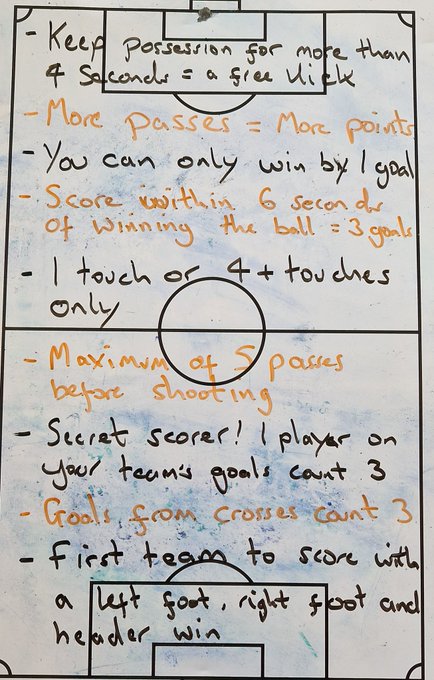 - Keep possession for more than
4 Seconds = a free kick
- More passes = More points
- You can only win by 1 goal
- Score within 6 seconds
of winning the ball = 3 goals
- 1 touch or 4+ touches
only
- Maximum of 5 passes
before shooting
- Secret scorer! 1 player on
your team's goals count 3
- Goals from crosses count 3
- First team to score with
a left foot, right foot and
header win